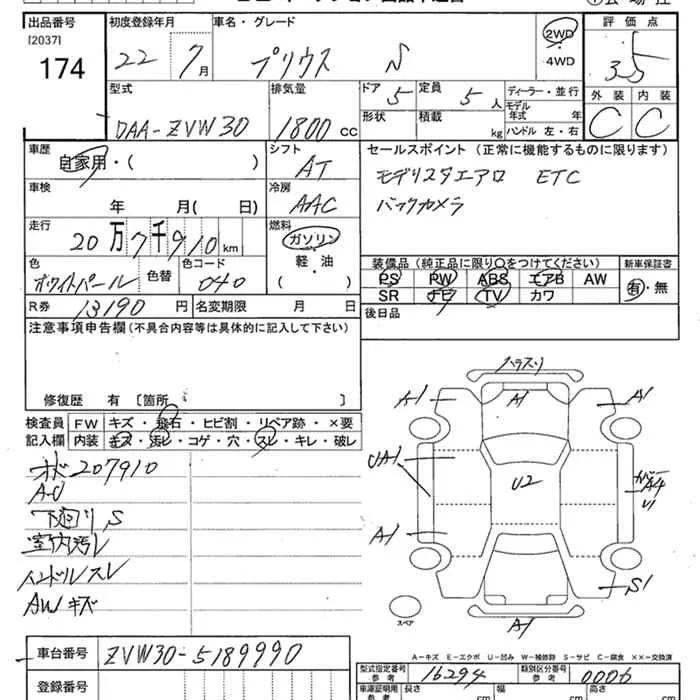 出品番号 初度登録年月 車名・グレード 評価点
[2037]
174
22 7月 プリウス S 2WD
・
4WD 3.5
型式 排気量 ドア 5 定員 5人 ディーラー・並行 外装 内装
DAA-ZVW30 1800cc 形状 積載 kg モデル年式 年 C C
ハンドル 左・右
車歴 シフト セールスポイント (正常に機能するものに限ります)
自家用・( ) AT モデリスタエアロ ETC
車検 冷房 バックカメラ
年 月( 日) AAC
走行 燃料
20万7千910km ガソリン 装備品 (純正品に限り○をつけてください) 新車保証書
色 色替 色コード 軽・油 PS PW ABS エアB AW 有・無
ホワイトパール 040 ( ) SR ナビ TV カワ
R券 13190円 名変期限 月 日 後日品
注意事項申告欄(不具合内容等は具体的に記入して下さい)
修復歴 有 [箇所 ]
検査員 FW キズ・飛石・ヒビ割・リペア跡・×要
記入欄 内装 キズ・汚レ・コゲ・穴・スレ・キレ・破レ
オド207910
下廻り S
室内汚レ
ハンドルスレ
AWキズ
A1
A1
A1
UA1
U2
A4
U1
A1
S1
A1
スペア
A-キズ E-エクボ U-凹み W-補修跡 S-サビ C-腐食 ××-交換済
車台番号 ZVW30-5189990
登録番号
型式指定番号 参考 16294 類別区分番号 参考 0006
車庫証明用 参考 長さ cm 幅 cm 高さ cm